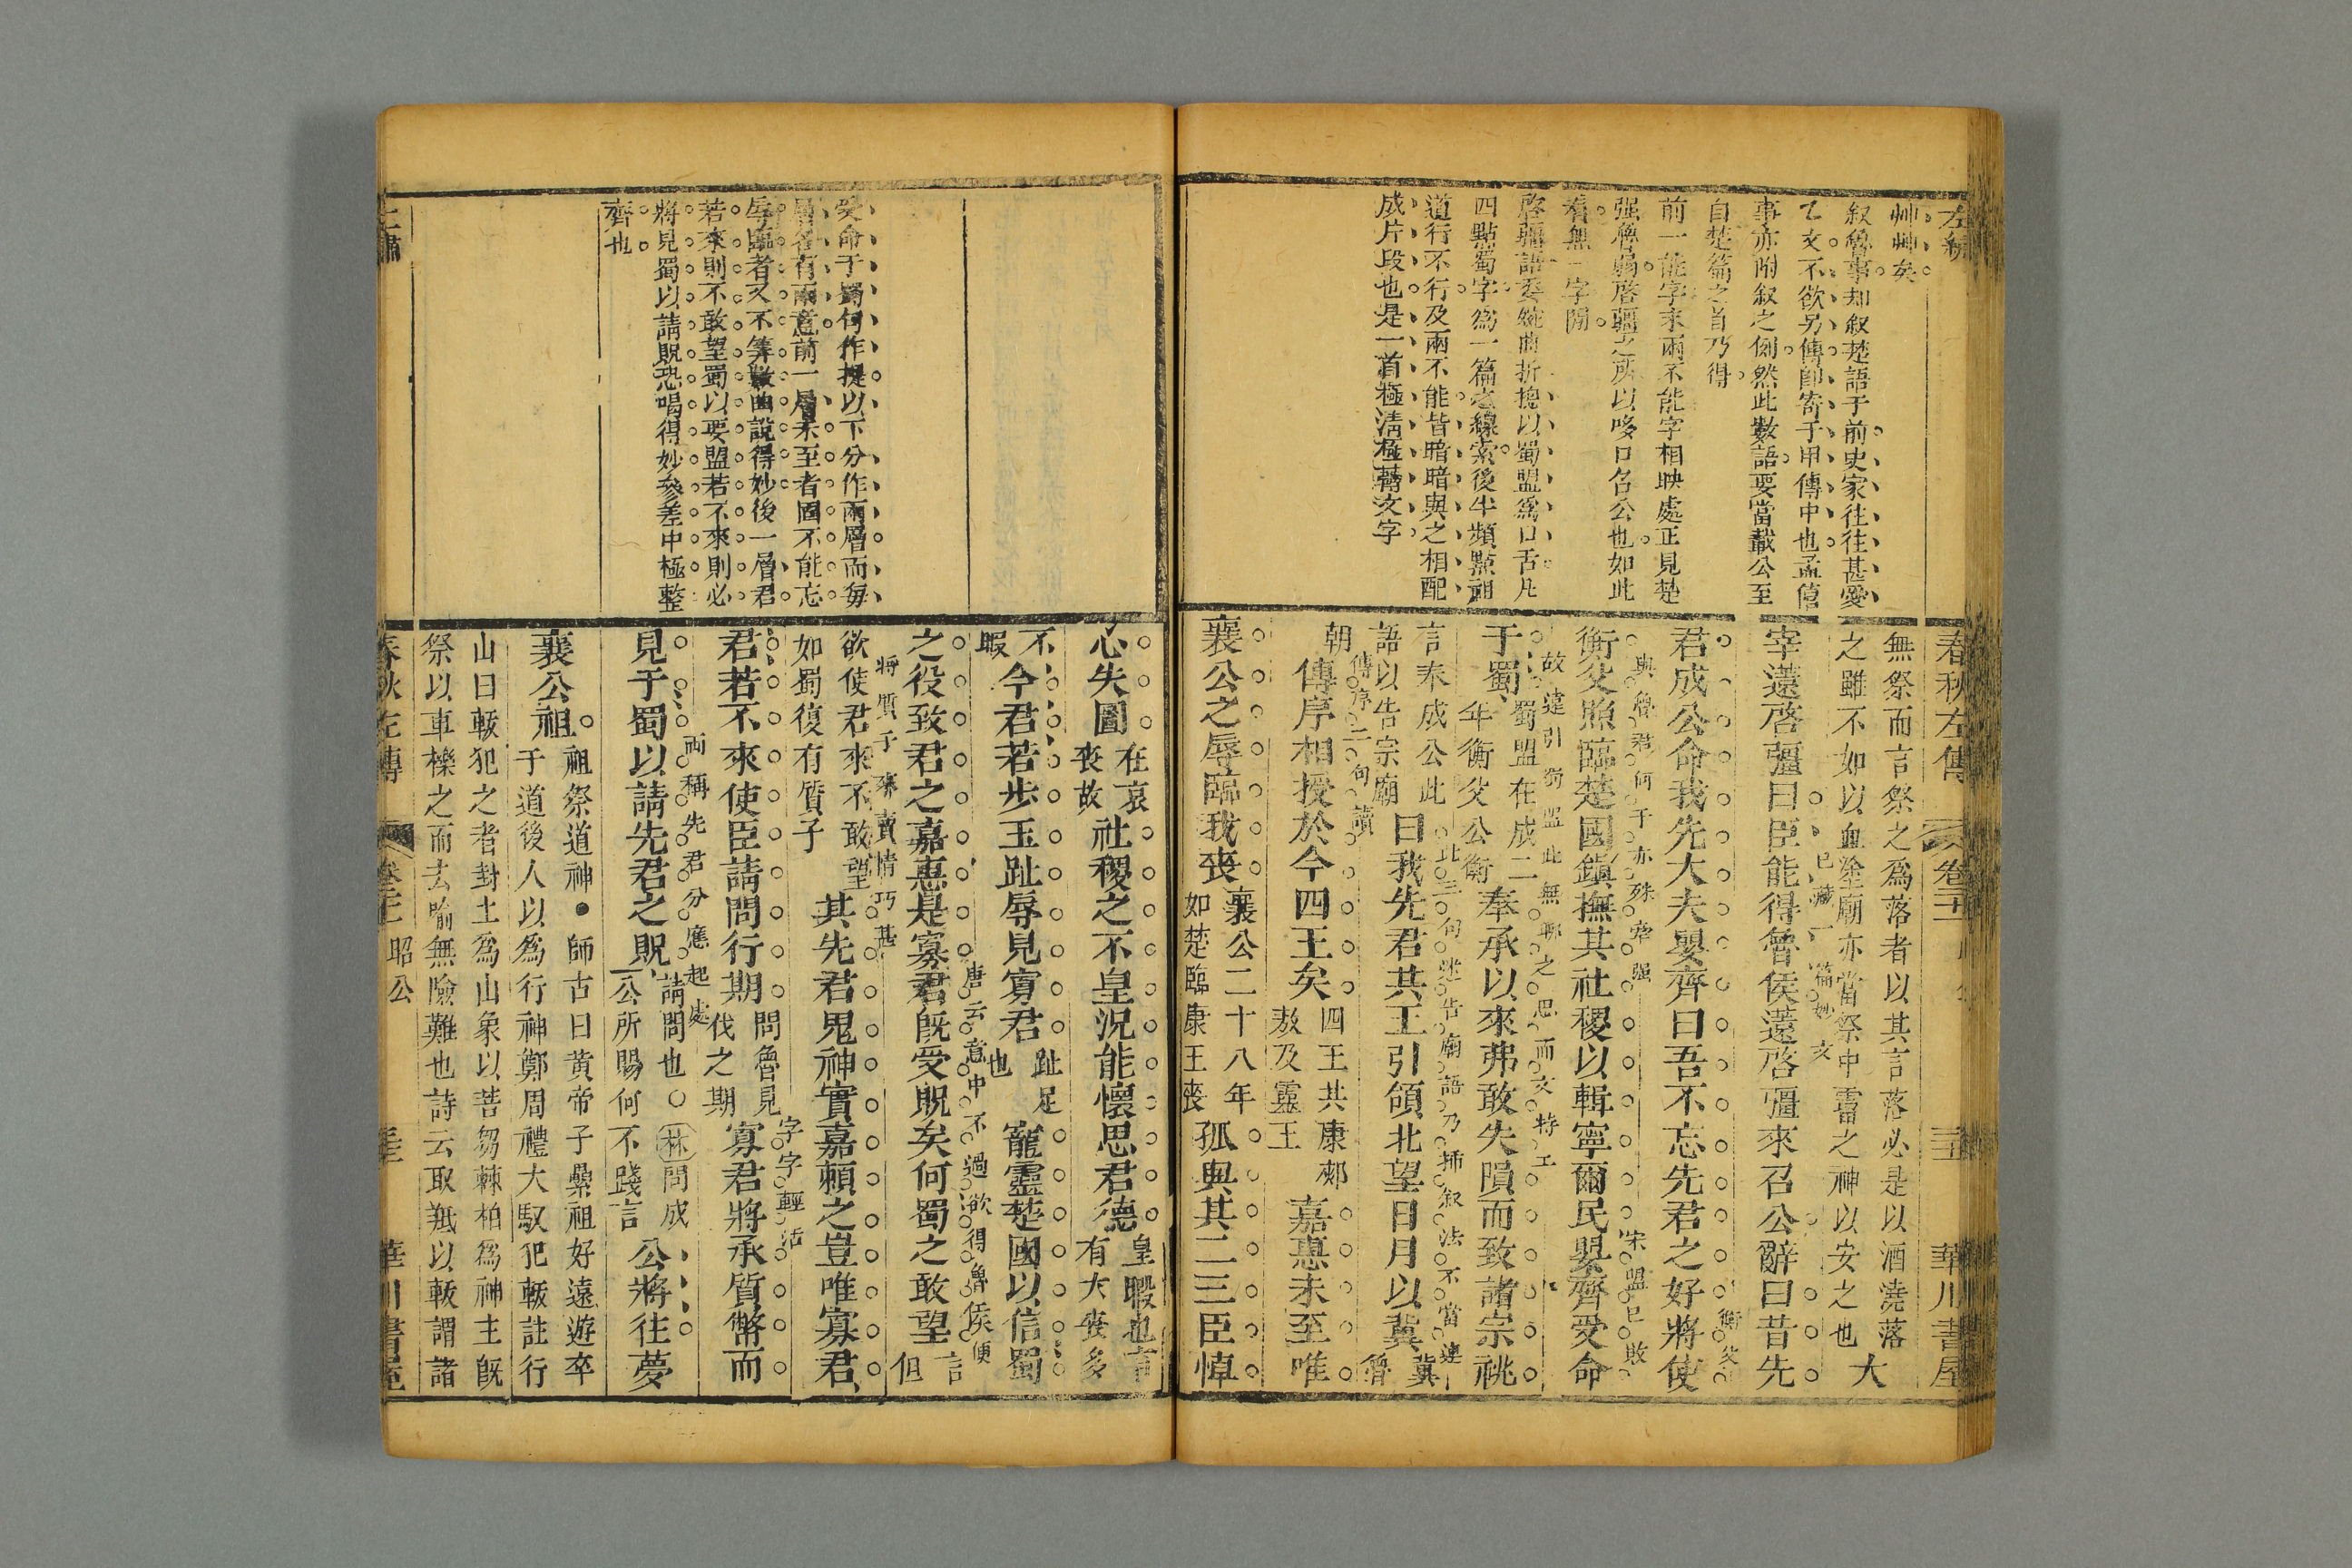 左繡
艸艸矣
叙魯事却叙楚語于前史家往往甚愛
乙文不欲另傳卽寄于甲傳中也孟僖
事亦附叙之例然此數語要當載公至
自楚篇之首乃得
前一能字來兩不能字相映處正見楚
强魯弱啓疆之所以哆口召公也如此
看無一字閒
啓疆語委婉曲折摠以蜀盟爲口舌凡
四點蜀字爲一篇之線索後半頻點祖
道行不行及兩不能皆暗暗與之相配
成片段也是一首極淸極轉文字
春秋左傳
卷二十一
華川書屋
無祭而言祭之爲落者以其言落必是以酒澆落
之雖不如以血塗廟亦當祭中霤之神以安之也
大
宰薳啓彊曰臣能得魯侯薳啓彊來召公辭曰昔先
已藏一篇妙文
君成公命我先大夫嬰齊曰吾不忘先君之好將使
衡父
衡父照臨楚國鎭撫其社稷以輯寧爾民嬰齊受命
與魯君何干亦殊牽强
宋盟已敗
于蜀
蜀盟在成二
年衡父公衡
奉承以來弗敢失隕而致諸宗祧
故違引蜀盟此無聊之思而文特工
言奉成公此
語以告宗廟
曰我先君共王引領北望日月以冀
冀
魯
此三句述告廟語乃揷叙法不當連
朝
傳序相授於今四王矣
傳序二句讀
四王共康郟
敖及靈王
嘉惠未至唯
襄公之辱臨我喪
襄公二十八年
如楚臨康王喪
孤與其二三臣悼
受命于蜀句作提以下分作兩層而每
層各有兩意前一層未至者固不能忘
辱臨者又不筭數曲說得妙後一層君
若來則不敢望蜀以要盟若不來則必
將見蜀以請貺恐喝得妙參差中極整
齊也
心失圖
在哀
喪故
社稷之不皇況能懷思君德
皇暇也言
有大喪多
不
暇
今君若步玉趾辱見寡君
趾足
也
寵靈楚國以信蜀
之役致君之嘉惠是寡君旣受貺矣何蜀之敢望
言
但
唐云意中不過欲得魯侯便
欲使君來不敢望
如蜀復有質子
其先君鬼神實嘉賴之豈唯寡君
將質子來賣情巧甚
君若不來使臣請問行期
問魯見
伐之期
寡君將承質幣而
字字輕活
見于蜀以請先君之貺
請問也○林問成
公所賜何不踐言
公將往夢
兩稱先君分應起處
襄公祖
祖祭道神●師古曰黃帝子纍祖好遠遊卒
于道後人以爲行神鄭周禮大馭犯軷註行
山曰軷犯之者封土爲山象以菩芻棘柏爲神主旣
祭以車轢之而去喻無險難也詩云取羝以軷謂諸
春秋左傳
昭公
華川書屋